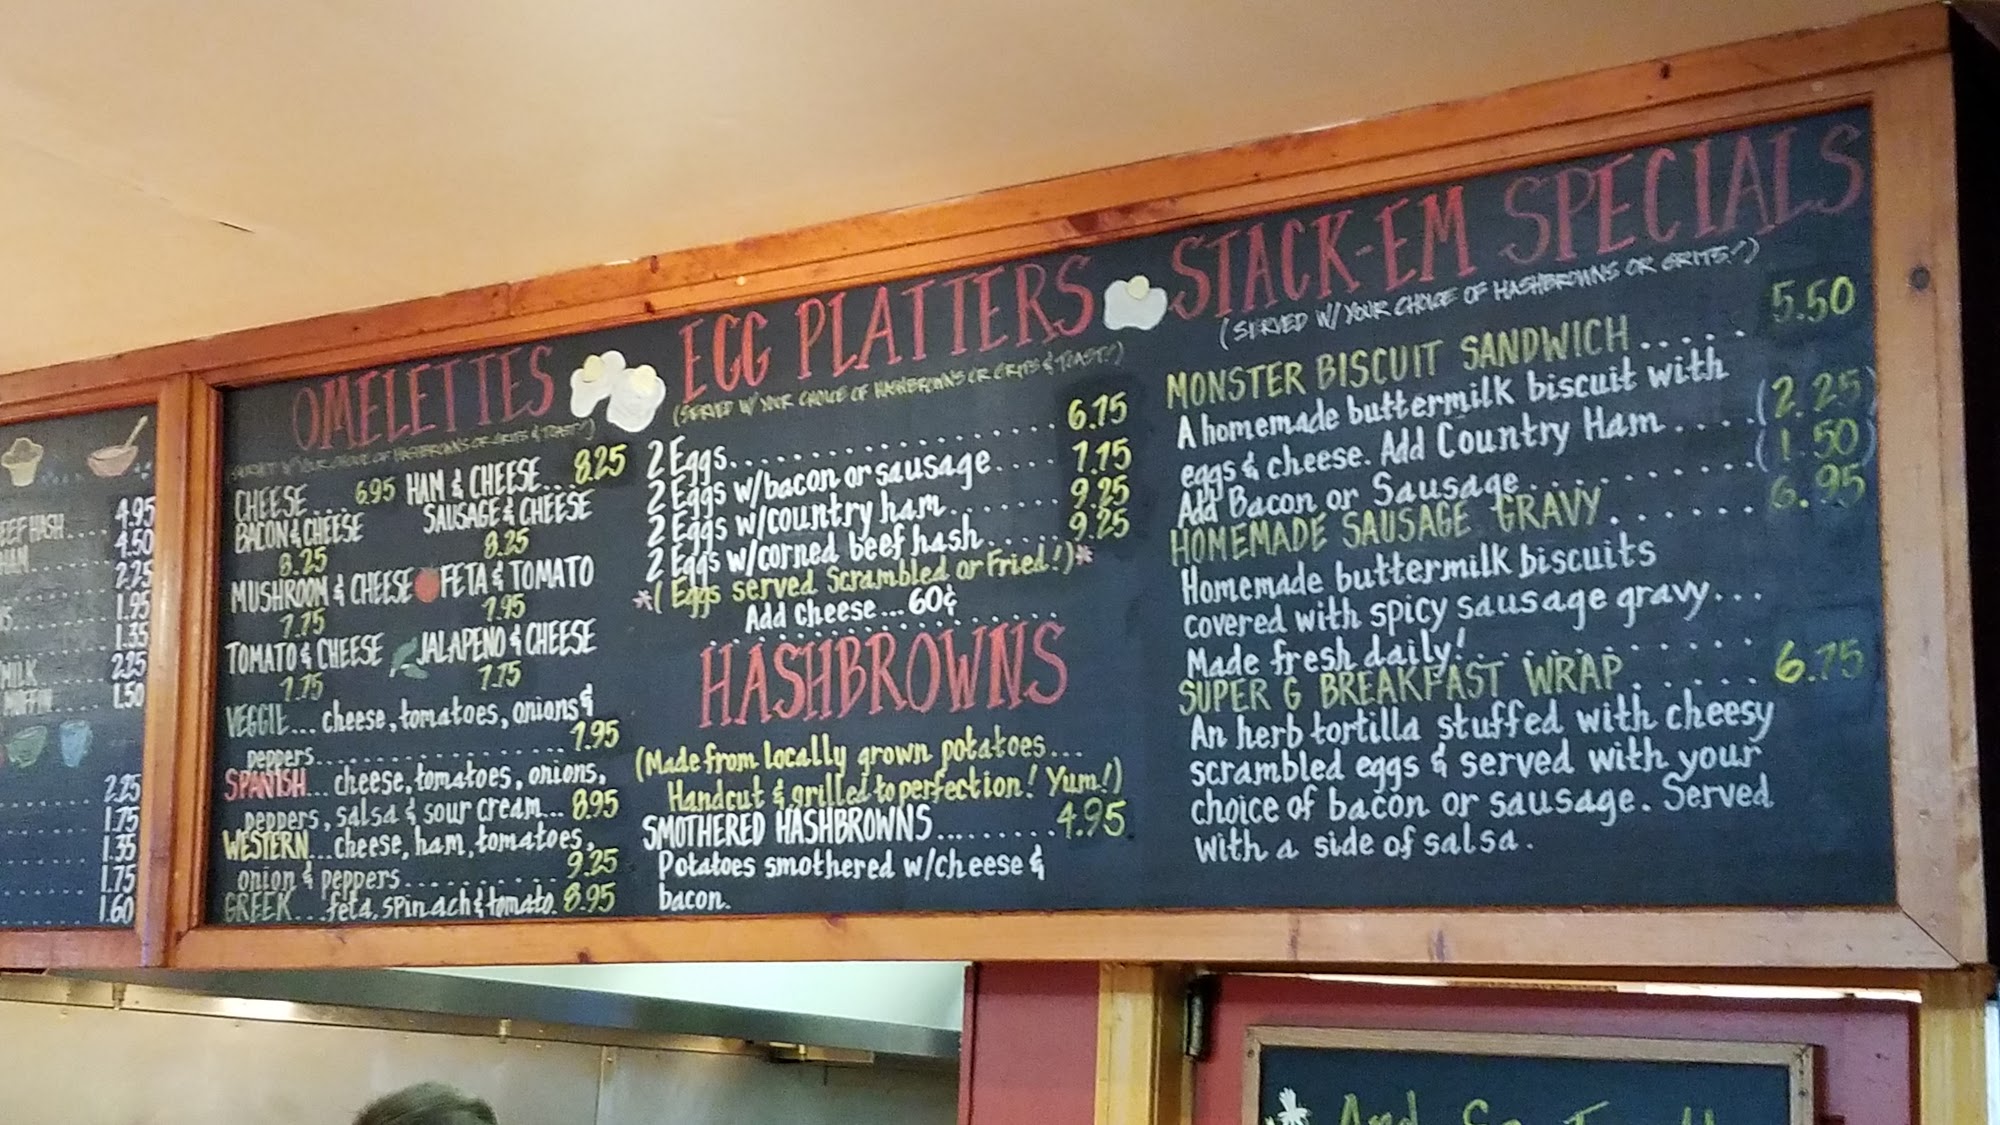 4.95
EEF HASH....
4.50
HAM
2.25
1.95
1.35
MILK 2.25
1.50
2.25
1.75
1.35
1.75
1.60
OMELETTES
(SERVED W/ YOUR CHOICE OF HASHBROWNS OR GRITS & TOAST!)
CHEESE.... 6.95 HAM & CHEESE... 8.25
BACON & CHEESE SAUSAGE & CHEESE
8.25 8.25
MUSHROOM & CHEESE FETA & TOMATO
7.75 7.95
TOMATO & CHEESE JALAPENO & CHEESE
7.75 7.75
VEGGIE... cheese, tomatoes, onions &
peppers.................. 7.95
SPANISH... cheese, tomatoes, onions,
peppers, salsa & sour cream... 8.95
WESTERN... cheese, ham, tomatoes,
onion & peppers............ 9.25
GREEK... feta, spinach & tomato. 8.95
EGG PLATTERS
(SERVED W/ YOUR CHOICE OF HASHBROWNS OR GRITS & TOAST!)
2 Eggs.................. 6.75
2 Eggs w/bacon or sausage.... 7.75
2 Eggs w/country ham....... 9.25
2 Eggs w/corned beef hash..... 9.25
*(Eggs served Scrambled or Fried!)*
Add cheese... 60¢
HASHBROWNS
(Made from locally grown potatoes...
Handcut & grilled to perfection! Yum!)
SMOTHERED HASHBROWNS........ 4.95
Potatoes smothered w/cheese &
bacon.
STACK-EM SPECIALS
(SERVED W/ YOUR CHOICE OF HASHBROWNS OR GRITS!)
MONSTER BISCUIT SANDWICH..... 5.50
A homemade buttermilk biscuit with
eggs & cheese. Add Country Ham.... (2.25)
Add Bacon or Sausage.......... (1.50)
HOMEMADE SAUSAGE GRAVY...... 6.95
Homemade buttermilk biscuits
covered with spicy sausage gravy...
Made fresh daily!............
SUPER G BREAKFAST WRAP...... 6.75
An herb tortilla stuffed with cheesy
scrambled eggs & served with your
choice of bacon or sausage. Served
with a side of salsa.